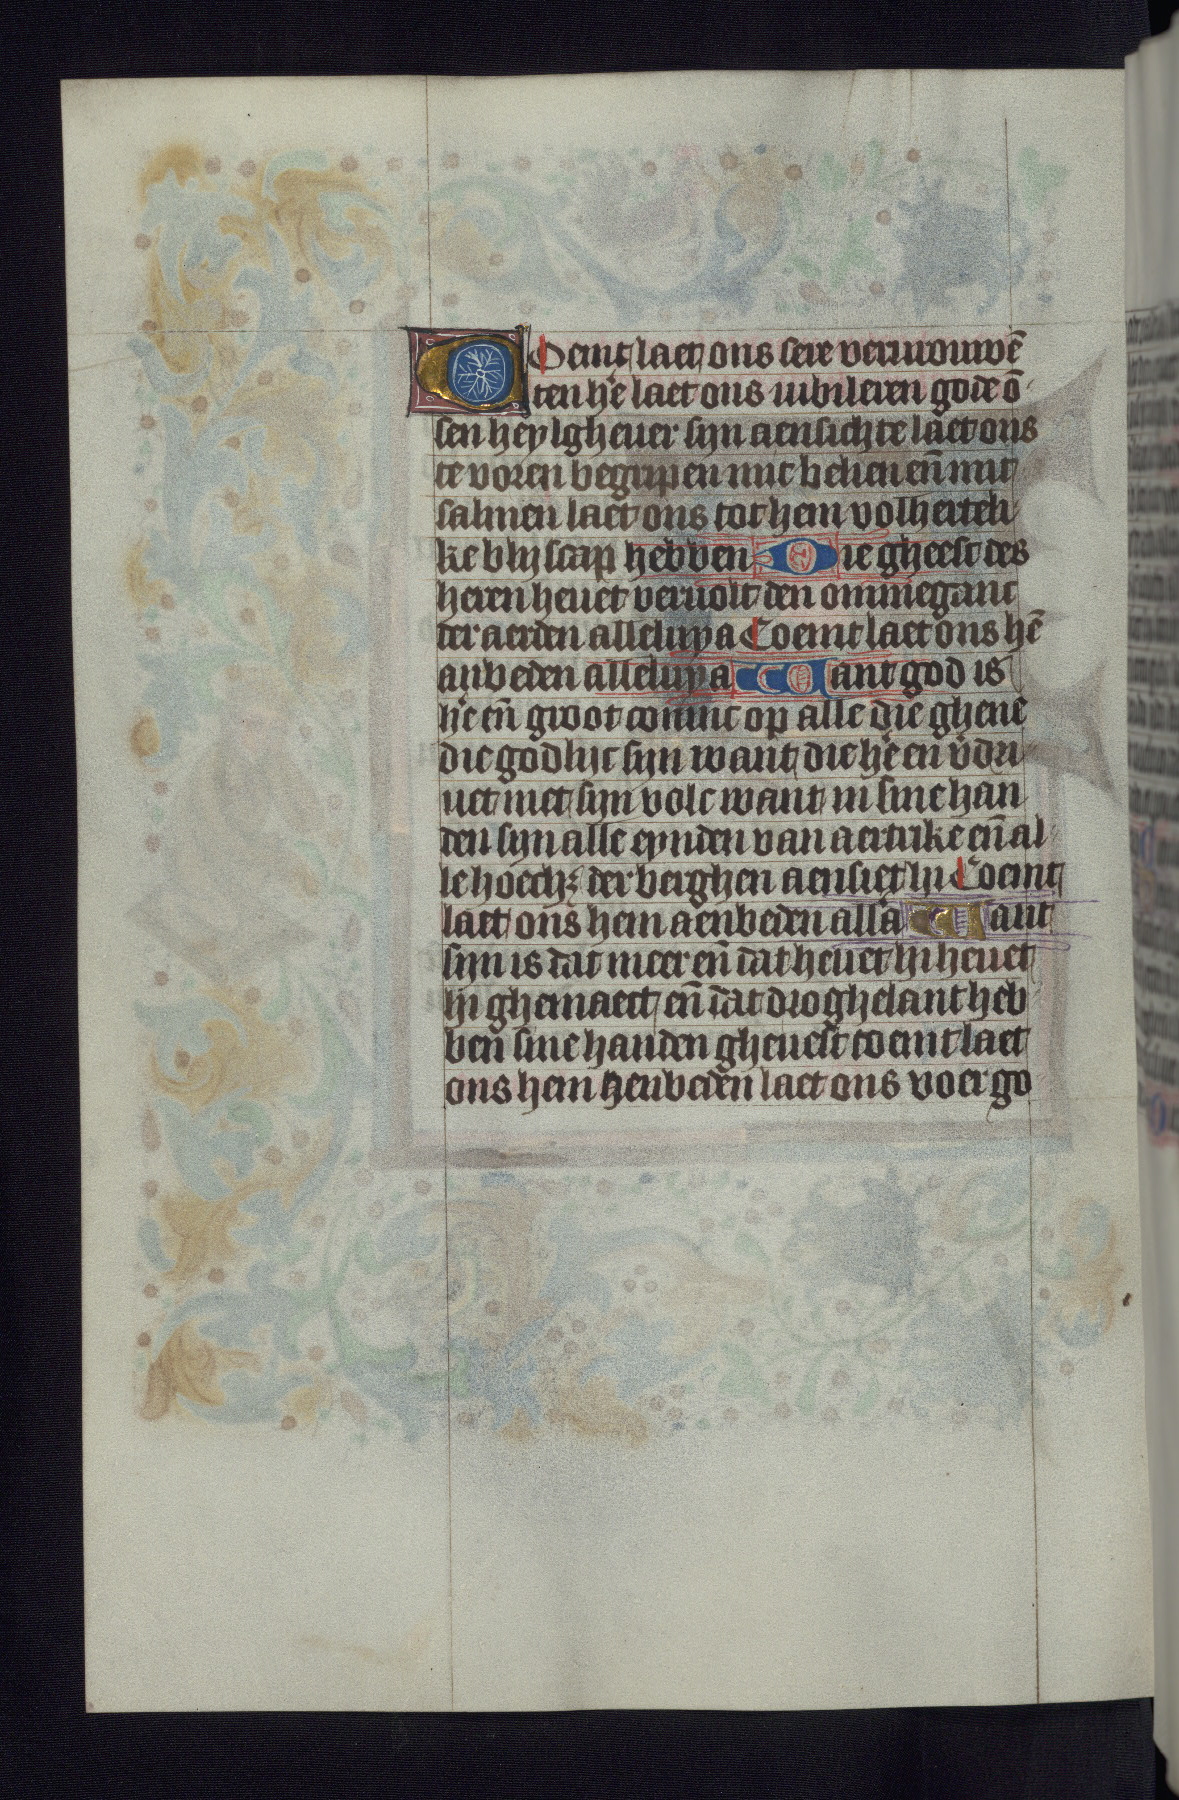 COemt laet ons sere vervrouwē
ten hē laet ons iubileren gode ō
sen heylgheuer syn aensichte laet ons
te voren begripen mit belien eñ mit
salmen laet ons tot hem volherteli
ke blyscap hebben Die gheest des
heren heuet veruolt den ommegant
der aerden alleluya Coemt laet ons hē
anbeden alleluya Want god is
hē eñ groot coninc op alle die ghene
die godlijc syn want die hē en v̄dri
uet niet syn volc want in sine han
den syn alle eynden van aertrike eñ al
le hoechꝫ der berghen aensiet hi Coemt
laet ons hem aenbeden all'a Want
syn is dat meer eñ dat heuet hi heuet
hi ghemaect eñ dat droghelant heb
ben sine handen gheuest coemt laet
ons hem aenbeden laet ons voer go